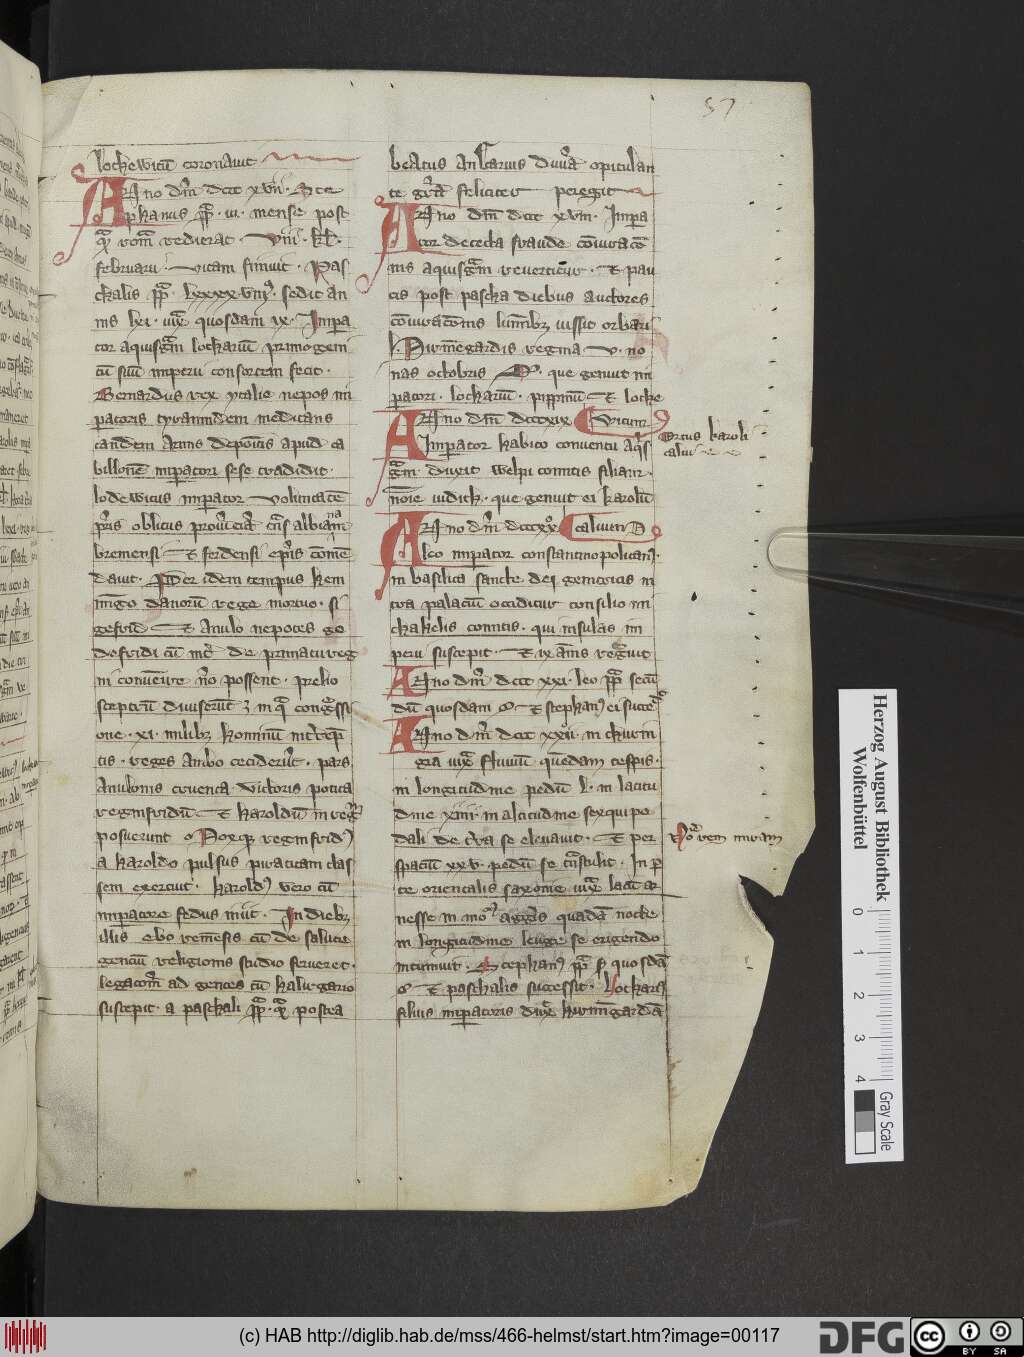 57
lothewicū coronauit
Anno dn̄i dccc xvii. Ste
phanus pp̄. vii. mense post
qͣ romā redierat. viii. kl̄.
februarii. vitam finiuit. Pas
chalis pp̄. lxxxxviii⁹. sedit an
nis
imꝑa
tor aquisgͣm lotharium primogeni
tū suū imperii consortem fecit.
Bernardus rex ytalie nepos im
peratoris tyrannidem meditans
tandem armis depositis apud ca
billonē imperatori sese tradidit.
lodewicus imperator voluntatē
pr̄is oblitus
bremensi Et ferdensi ep̄is cōmē
dauit. Per idem tempus hem
mīgo danorū rege mortuo. si
gefridꝰ Et Anulo nepotes go
defridi cū inter de primatu reg
ni conuenire nō possent. prelio
sceptrū diuiserūt in qua congressi
one. xi. milibꝫ hominū
tis. reges Ambo ceciderūt. pars
Anulonis cruenta victoris potita
reginfridū Et Haroldū in regnū
posuerunt Moxqꝫ reginfridꝰ
a haroldo pulsus piraticam clas
sem exercuit. haroldꝰ vero cū
imperatore fedus iniit. In diebꝫ
illis ebo remēsis cū de salute
gencium religionis studio ferueret.
legacōm ad gentes cū halitgario
suscepit a paschali pp̄. qͣ postea
beatus ansǥarius diuīa opitulan
te grā feliciter peregit
Anno dn̄i dccc xviii. Impa
tor detecta fraude cōiuratō
nis aquisgͣm reuertitur. Et pau
cis post pascha diebus auctores
cōiuracōnis lumībꝫ iussit orbari
Hirmegardis regina v. no
nas octobris que genuit im
peratori. lotharium. pippinū Et lothe
Anno dn̄i dcccxix wicum
Imperator habito conuentu aqͥs
gͣm. duxit welpi comitis filiam.
noīe iudith. que genuit ei karolū
Anno dn̄i dcccxx caluum
leo imperator constantinopolitanꝰ.
in basilica sancte dei genitricis in
tra palaciū occiditur consilio mi
chahelis comitis. qui insulas im
perii suscepit. Et ix annis regnauit
Anno dn̄i dccc xxi. leo pp̄ secū
dū quosdam Et stephanꝰ ei succes
Anno dn̄i dccc xxii. in thurin
gia iuxͣ fluuiū quedam cespis.
in longitudine pedū l. in latitu
dine xiiii. in altitudine sexquipe
dali de terra se eleuauit. Et per
spaciū xxv. pedū se trāstulit. In ꝑ
te orientalis saxonie iuxͣ lacū ar
nesse in modū aggeris quedā nocte
in longitudine leuge se erigendo
intumuit. Stephanꝰ pp̄ quosdā
Et paschalis successit. lotharꝰ
filius imperatoris duxit hirmīgardā
Ortus karoli
calui
No rem miram
Herzog August Bibliothek
Wolfenbüttel
0 1 2 3 4
Gray Scale
(c) HAB http://diglib.hab.de/mss/466-helmst/start.htm?image=00117
DFG
cc BY SA